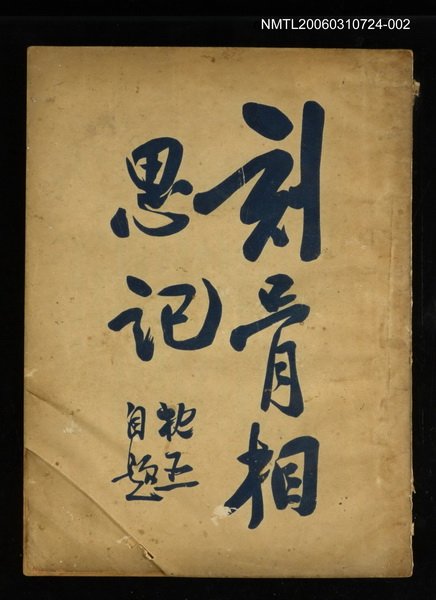 NMTL20060310724-002
刻骨相
思記
枕亞
自題